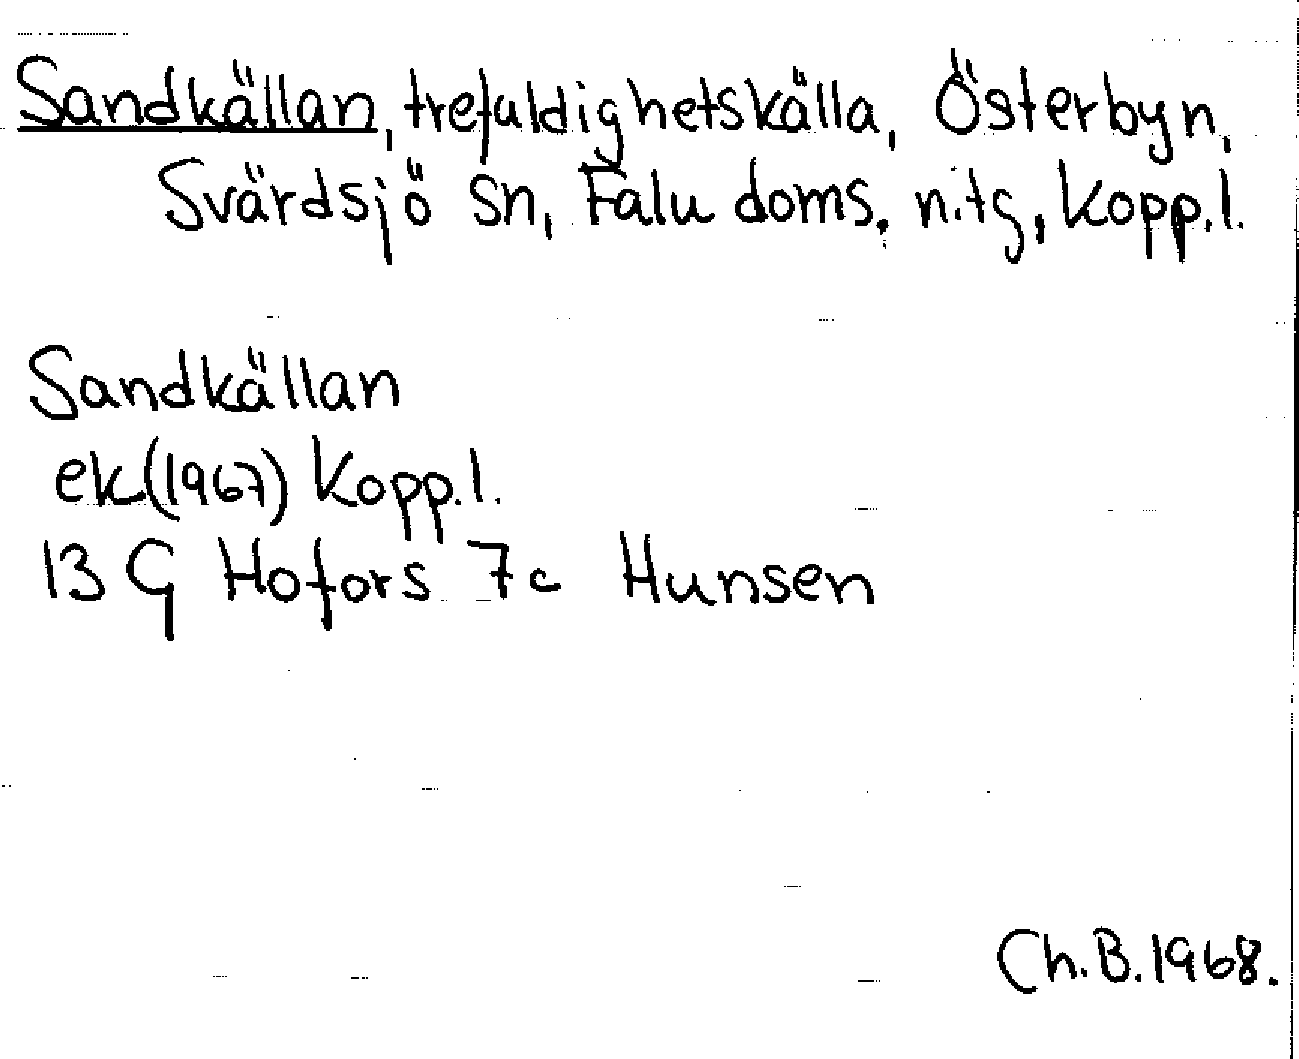 Sandkällan, trefaldighetskälla, Österbyn,
Svärdsjö sn, Falu doms. n.tg, Kopp.l.
Sandkällan
ek(1967) Kopp.l.
13 G Hofors 7c Hunsen
Ch.B.1968.